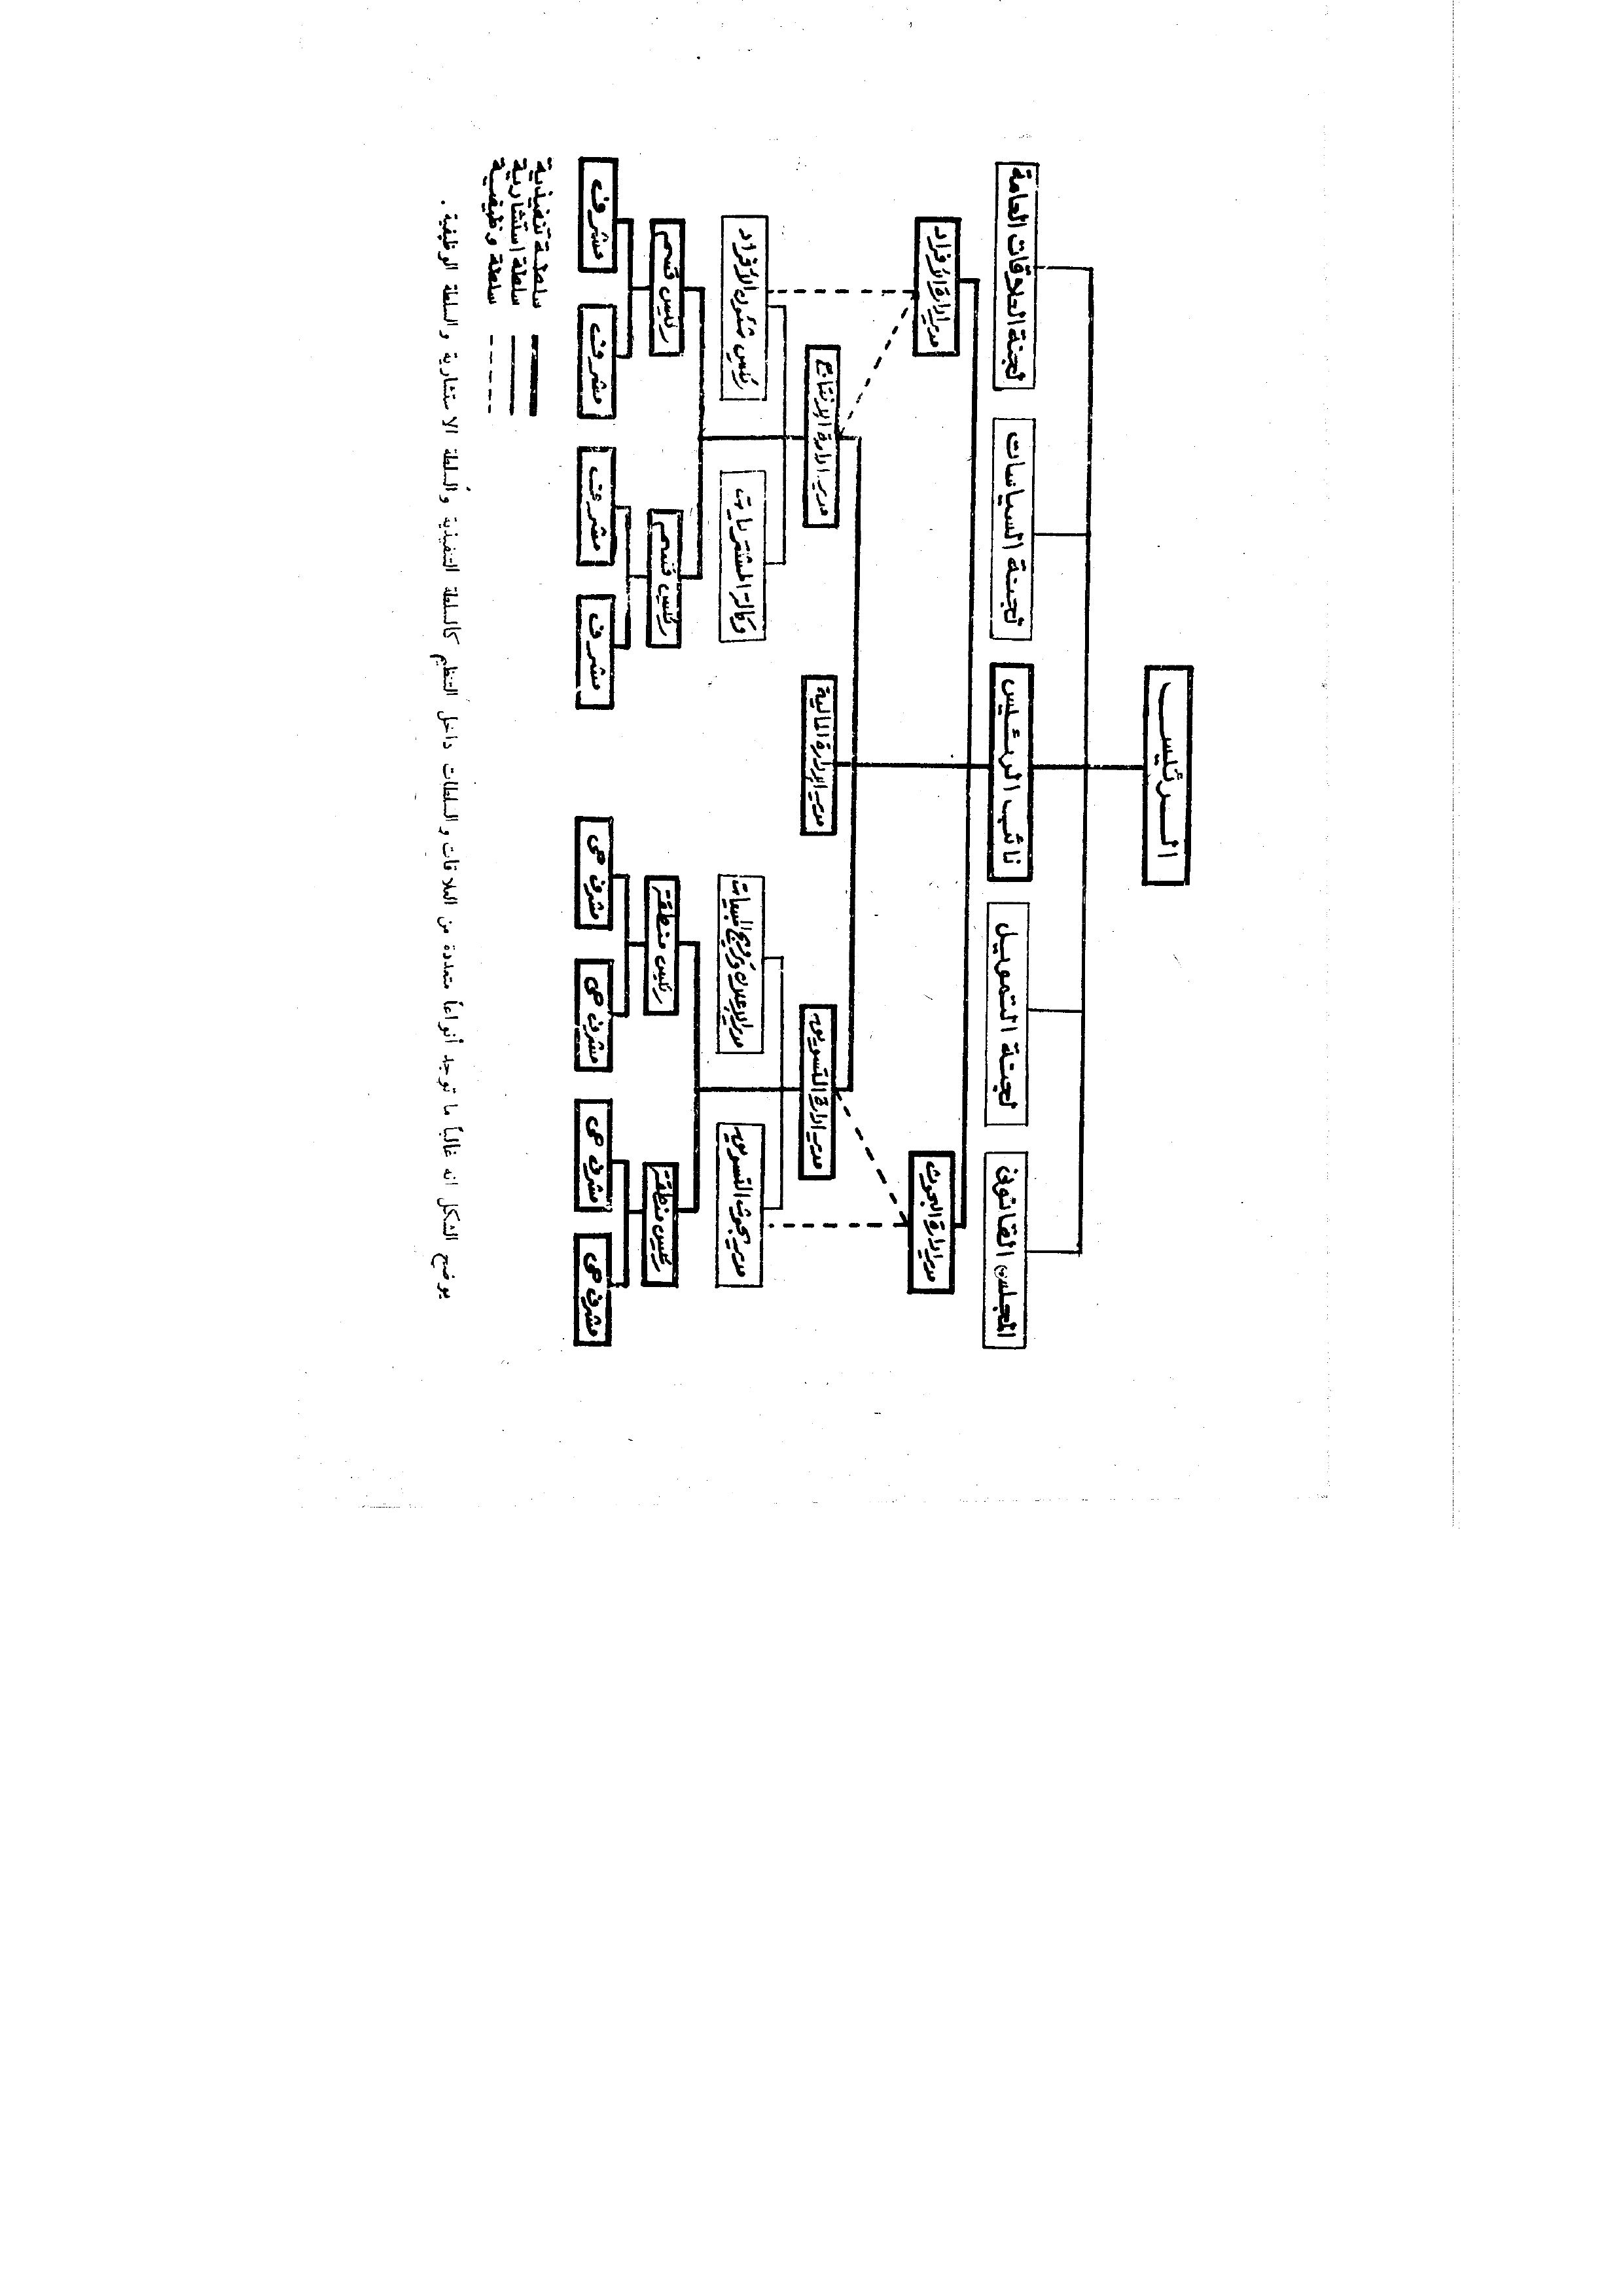 الرئيس
المجلس القانونى
لجنة التمويل
نائب الرئيس
لجنة السياسات
لجنة العلاقات العامة
مدير إدارة البحوث
مدير إدارة الأفراد
مدير إدارة التسويق
مدير الإدارة المالية
مدير إدارة الإنتاج
مدير بحوث التسويق
مدير الإعلان وترويج المبيعات
وكالة المشتريات
رئيس شئون الأفراد
رئيس منطقة
رئيس منطقة
رئيس قسم
رئيس قسم
مشرف حى
مشرف حى
مشرف حى
مشرف حى
مشرف
مشرف
مشرف
مشرف
سلطة تنفيذية
سلطة استشارية
سلطة وظيفية
يوضح الشكل انه غالباً ما توجد أنواعاً متعددة من العلاقات والسلطات داخل التنظيم كالسلطة التنفيذية والسلطة الاستشارية والسلطة الوظيفية .